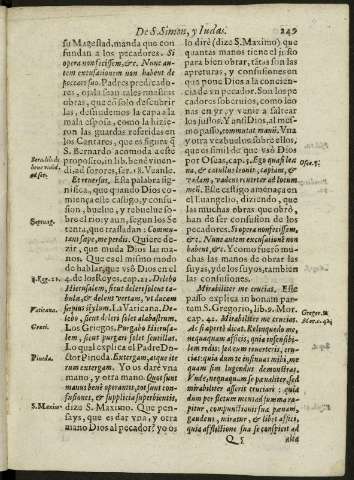 De S. Simon, y Iudas.
249
su Magestad, manda que con
fundan a los pecadores. Si
opera non fecissem, &c. Nunc au-
tem excusationem non habent de
peccato suo. Padres predicado-
res, ojala sean tales nuestras
obras, que có solo descubrir
las, desnudemos la capa a la
mala esposa, como la hizie-
ron las guardas referidas en
los Cantares, que es figura q̃
S. Bernardo acomoda a este
proposito, in lib. bene viven-
di, ad sorores, ser. 18. Veanle.
Et reuersus. Esta palabra sig-
nifica, que quando Dios co-
miença este castigo, y confu-
sion, buelue, y rebuelue so-
bre el rio y aun, segun los Se-
tenta, que trasladan: Commu-
tans sæpe, me perdis. Quiere de-
zir, que muda Dios las ma-
nos. Que es el mismo modo
de hablar, que vsó Dios en el
4. de los Reyes. cap. 21. Delebo
Hierusalem, sicut deleri solent ta-
bulæ, & delens vertam, vt ducam
sæpius stylum. La Vaticana, De-
lebo, sicut deleri solet alabastrum.
Los Griegos, Purgabo Hierusa-
lem, sicut purgari solet scutillas.
Lo qual explica el Padre Do-
ctor Pineda. Extergam, atque ite
rum extergam. Yo os daré vna
mano, y otra mano. Quot sunt
manus benè operantis, tot sunt con-
fusiones, & supplicia superbientis,
dize S. Maximo. Que pen-
says, que es dar vna, y otra
mano Dios al pecador? yo os
Bern. lib. de
bene viuẽdi,
ad soro.
Septuag.
4. Reg. 21.
Vaticana.
Graeci.
Pineda.
S. Maximo
lo diré (dize S. Maximo) que
quantas manos tiene el justo
para bien obrar, tãtas son las
apreturas, y confusiones en
que pone Dios a la concien-
cia de vn pecador. Son los pe
cadores soberuios, como leo
nas en yr, y venir a saltear
los justos. Y anssi Dios, al mes-
mo passo, commutat manũ. Vna
y otra vez buelue sobre ellos,
que es simil de que vsó Dios
por Oseas, cap. 5. Ego quasi leæ
na, & catulus leonis, capiam, &
vadam, vadens reuertar ad locum
meũ. Este castigo amenaça en
el Euangelio, diziendo, que
las muchas obras que obró,
han de ser confusion de los
pecadores. Si opera non fecissem,
&c. Nunc autem excusationẽ non
habent, &c. Y como fueró mu-
chas las manos de obrar las
suyas, y de los suyos, tambien
las confusiones.
Mirabiliter me crucias. Este
passo explica in bonam par-
tem S. Gregorio, lib. 9. Mor.
cap. 41. Mirabiliter me crucias.
Ac si apertè dicat. Relinquendo me,
nequaquam afficis, quia insensibi-
lem reddis: sed cum reuerteris, cru-
cias: quia dum te insinuas mihi, me
quàm sim lugendus demonstras.
Vnde, nequaquam se pænaliter, sed
mirabiliter asserit cruciari: quia
dum per fletum mens ad summa ra-
pitur, compunctionis suæ pœnam,
gaudens, miratur, & libet affici,
quia afflictione sua se conspicit ad
Osee. 5.
Gregor. li. 9
Mor. c. 41
Q 5
alta